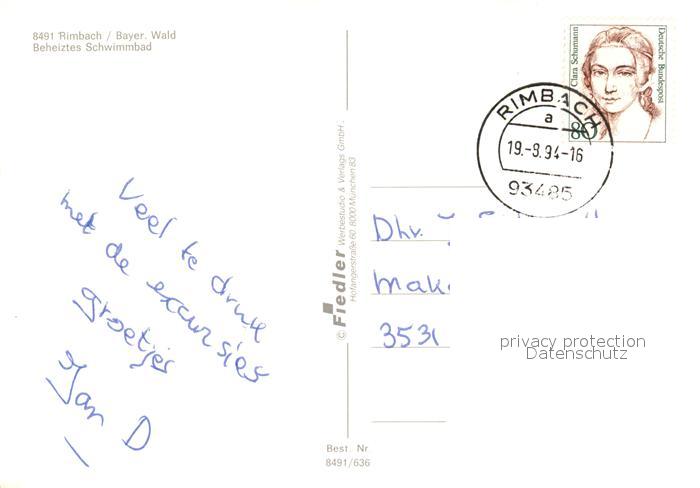 8491 Rimbach / Bayer. Wald
Beheiztes Schwimmbad
Veel te druk
met de excursies
groetjes
Jan D
© Fiedler Werbestudio & Verlags GmbH.
Hofangerstraße 60, 8000 München 83
Best. Nr.
8491/636
Clara Schumann
Deutsche Bundespost
80
RIMBACH
a
19.-8.94-16
93485
Dhr.
Mak
3531
privacy protection
Datenschutz